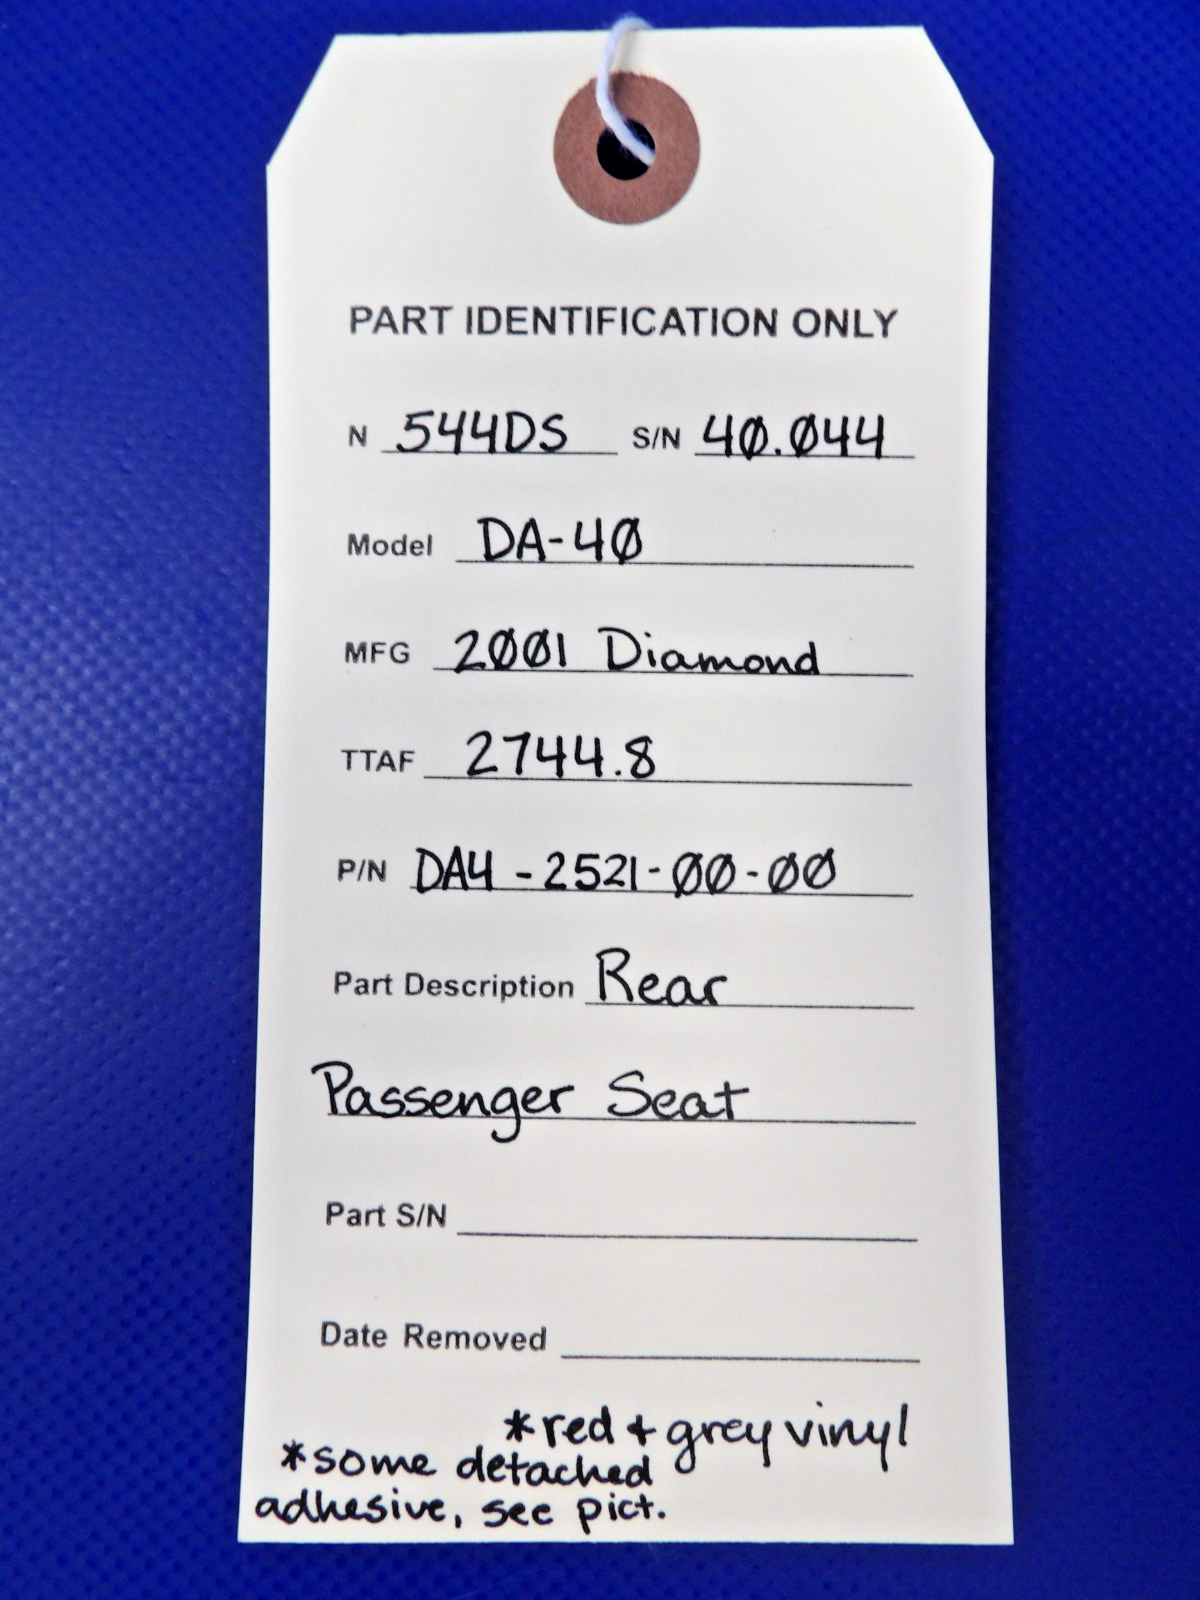 PART IDENTIFICATION ONLY
N 544DS S/N 40.044
Model DA-40
MFG 2001 Diamond
TTAF 2744.8
P/N DA4-2521-00-00
Part Description Rear
Passenger Seat
Part S/N
Date Removed
*red + grey vinyl
*some detached
adhesive, see pict.